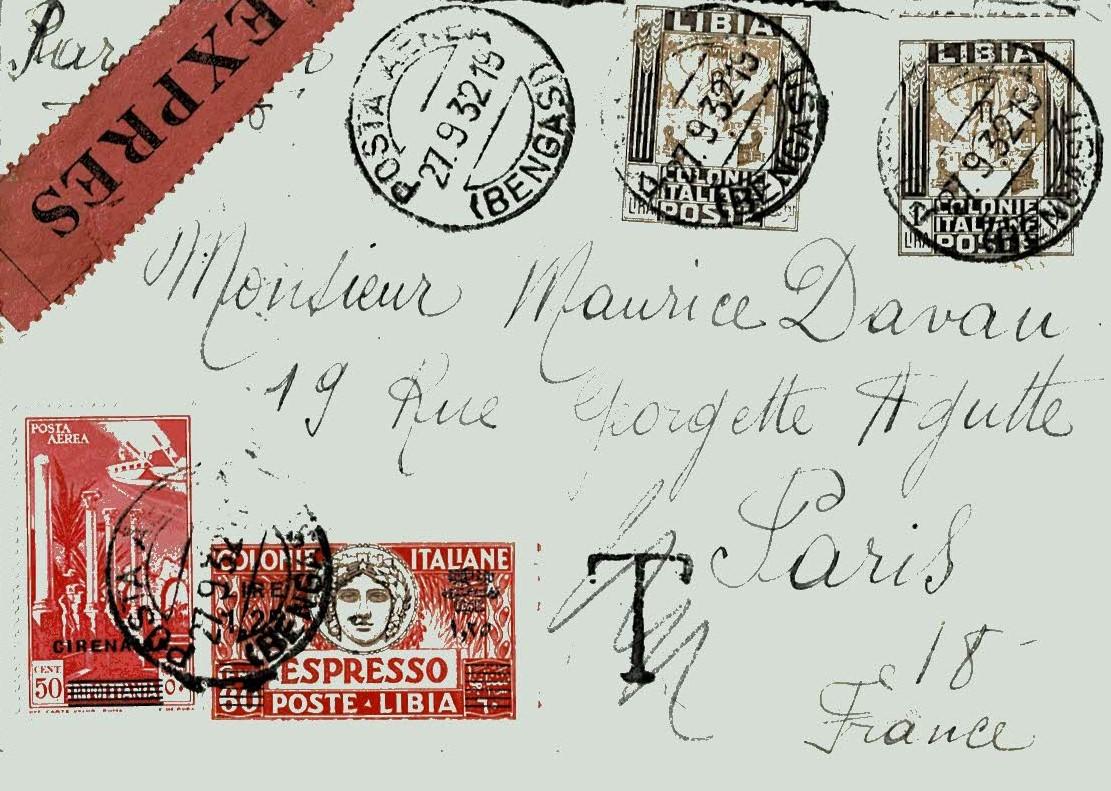 Par
EXPRÈS
POSTA AEREA
27.9.32 19
(BENGASI)
LIBIA
27.9.32 19
(BENGASI)
COLONIE
ITALIANE
POSTE
1 LIRA
LIBIA
27.9.32 19
(BENGASI)
COLONIE
ITALIANE
POSTE
1 LIRA
Monsieur Maurice Davau
19 Rue Georgette Agutte
Paris
18
France
T
POSTA
AEREA
CIRENA
CENT
50
POSTA
27.9.32
(BENGASI
COLONIE ITALIANE
LIRE
1,25
١,٢٥
ESPRESSO
60 POSTE LIBIA